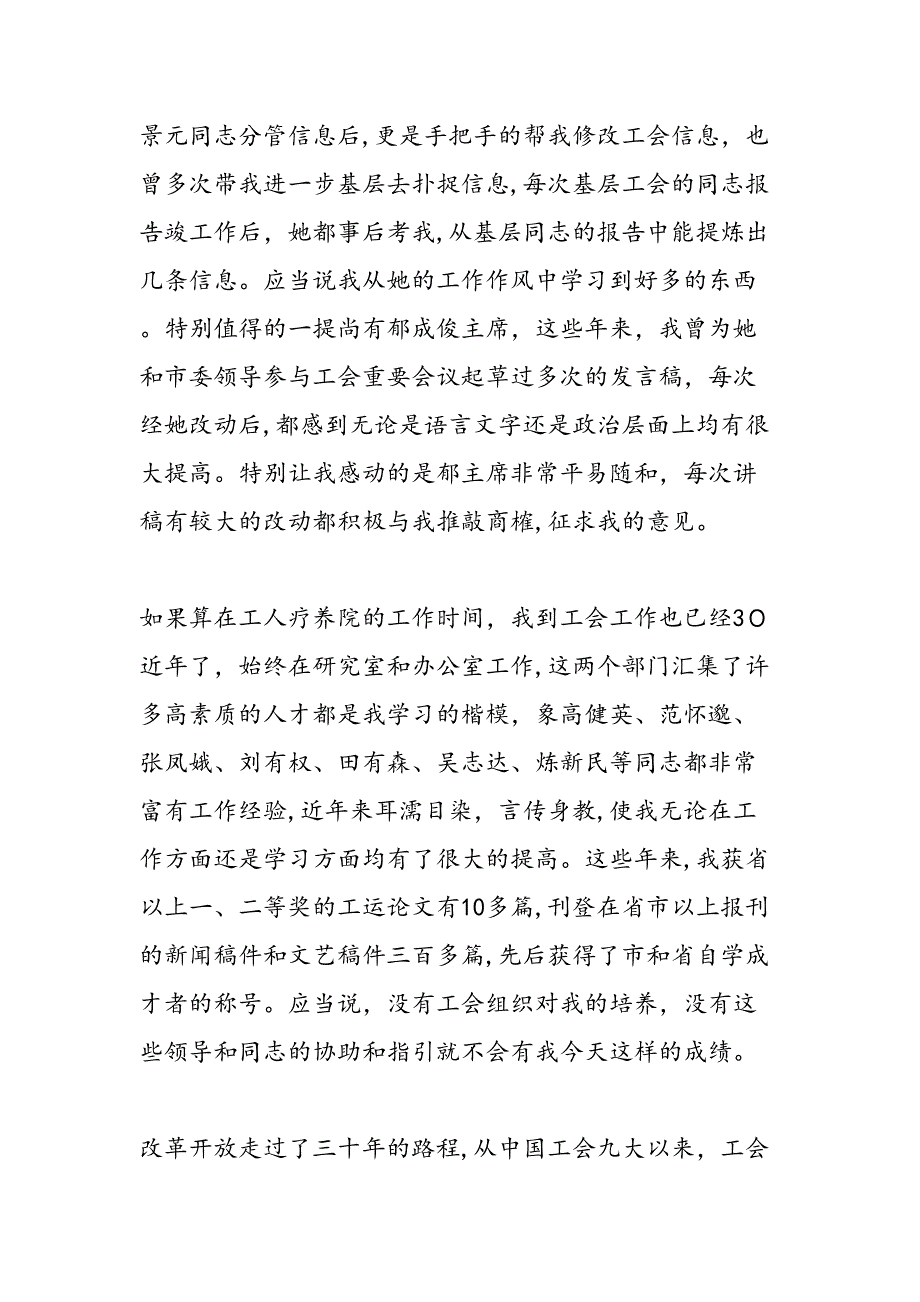 景元同志分管信息后,更是手把手的帮我修改工会信息，也
曾多次带我进一步基层去扑捉信息,每次基层工会的同志报
告竣工作后，她都事后考我,从基层同志的报告中能提炼出
几条信息。应当说我从她的工作作风中学习到好多的东西
。特别值得的一提尚有郁成俊主席，这些年来，我曾为她
和市委领导参与工会重要会议起草过多次的发言稿，每次
经她改动后,都感到无论是语言文字还是政治层面上均有很
大提高。特别让我感动的是郁主席非常平易随和，每次讲
稿有较大的改动都积极与我推敲商榷,征求我的意见。
如果算在工人疗养院的工作时间，我到工会工作也已经3O
近年了，始终在研究室和办公室工作,这两个部门汇集了许
多高素质的人才都是我学习的楷模，象高健英、范怀邈、
张凤娥、刘有权、田有森、吴志达、炼新民等同志都非常
富有工作经验,近年来耳濡目染，言传身教,使我无论在工
作方面还是学习方面均有了很大的提高。这些年来,我获省
以上一、二等奖的工运论文有10多篇,刊登在省市以上报刊
的新闻稿件和文艺稿件三百多篇,先后获得了市和省自学成
才者的称号。应当说，没有工会组织对我的培养，没有这
些领导和同志的协助和指引就不会有我今天这样的成绩。
改革开放走过了三十年的路程,从中国工会九大以来，工会